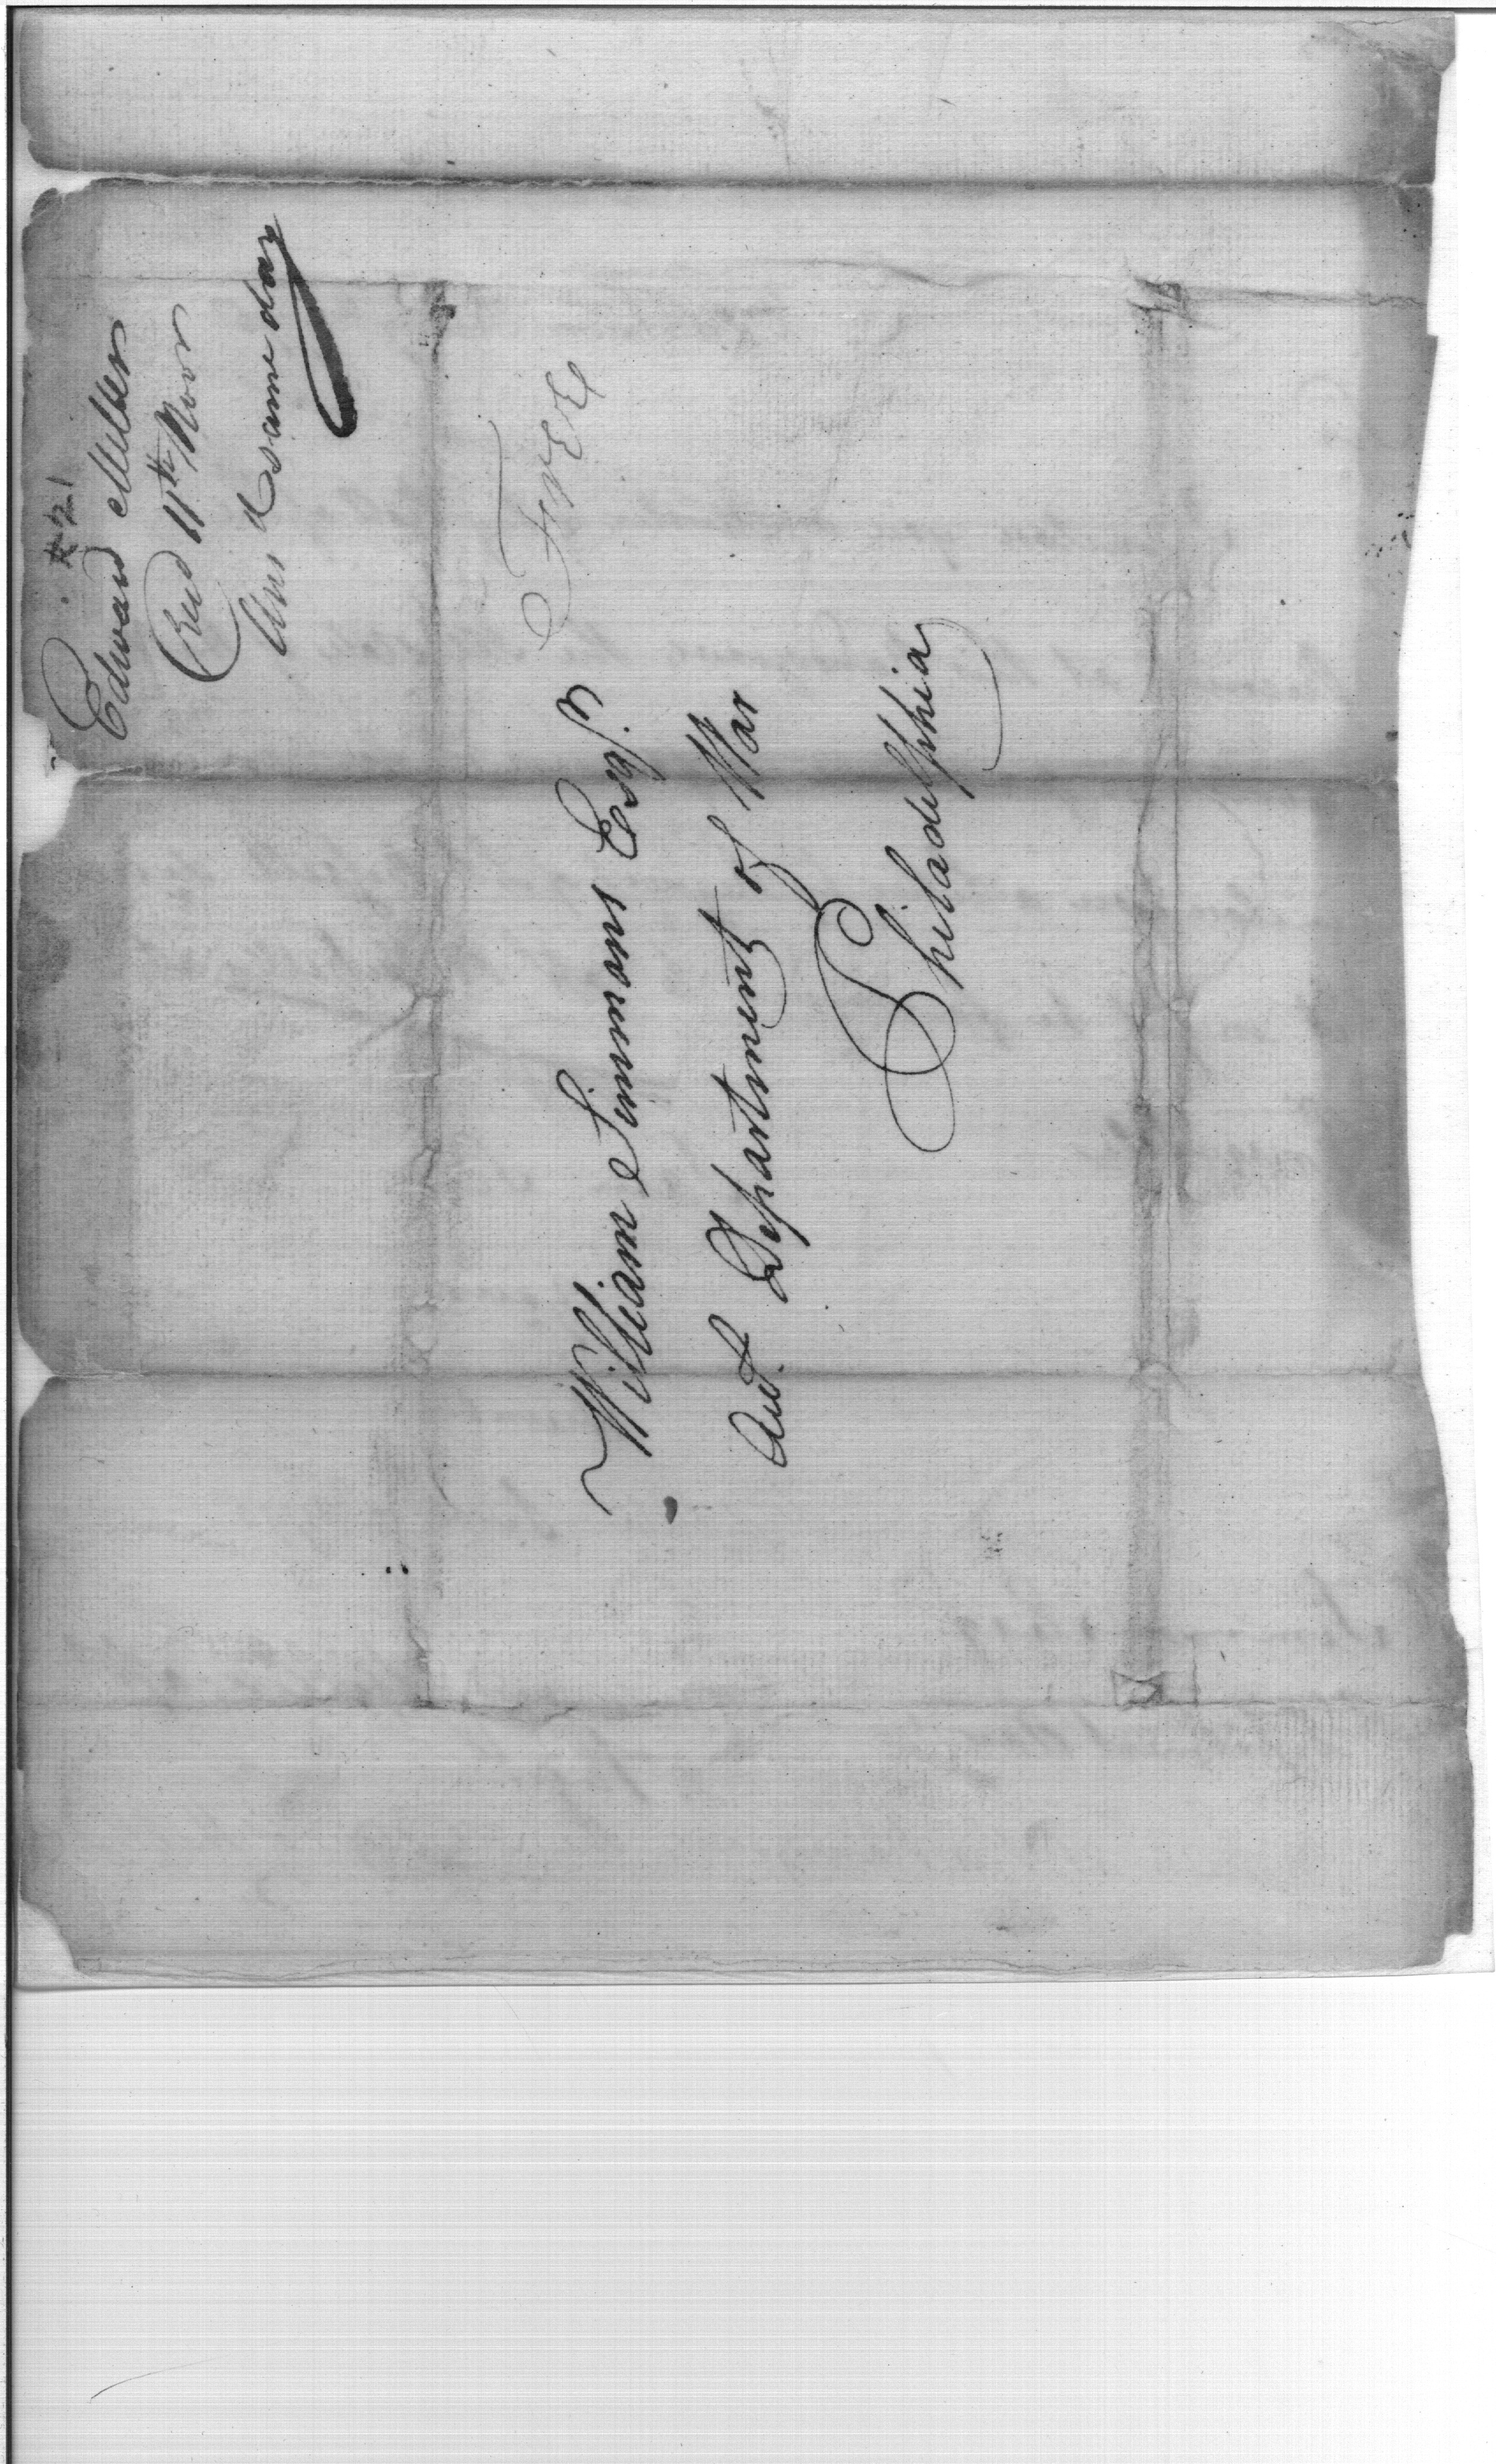 21
Edward Miller
Recd 11th Novr
Ans'd same day
Free
William Simmons Esqr.
Acct. Department of War
Philadelphia